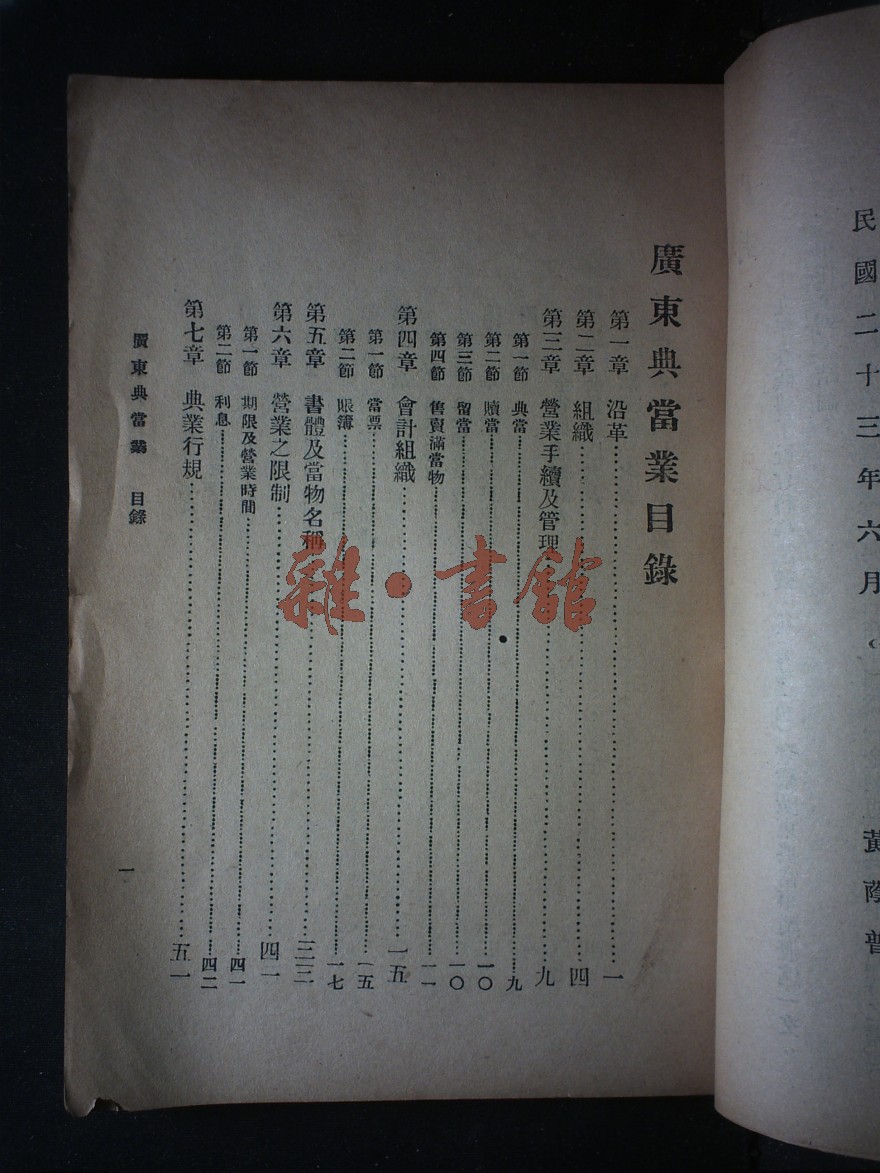 民國二十三年六月
黃蔭普
廣東典當業目錄
第一章 沿革……一
第二章 組織……四
第三章 營業手續及管理……九
第一節 典當……九
第二節 贖當……一〇
第三節 留當……一〇
第四節 售賣滿當物……一一
第四章 會計組織……一五
第一節 當票……一五
第二節 賬簿……一七
第五章 書體及當物名稱……三三
第六章 營業之限制……四一
第一節 期限及營業時間……四一
第二節 利息……四二
第七章 典業行規……五一
廣東典當業 目錄
一
雜·書館